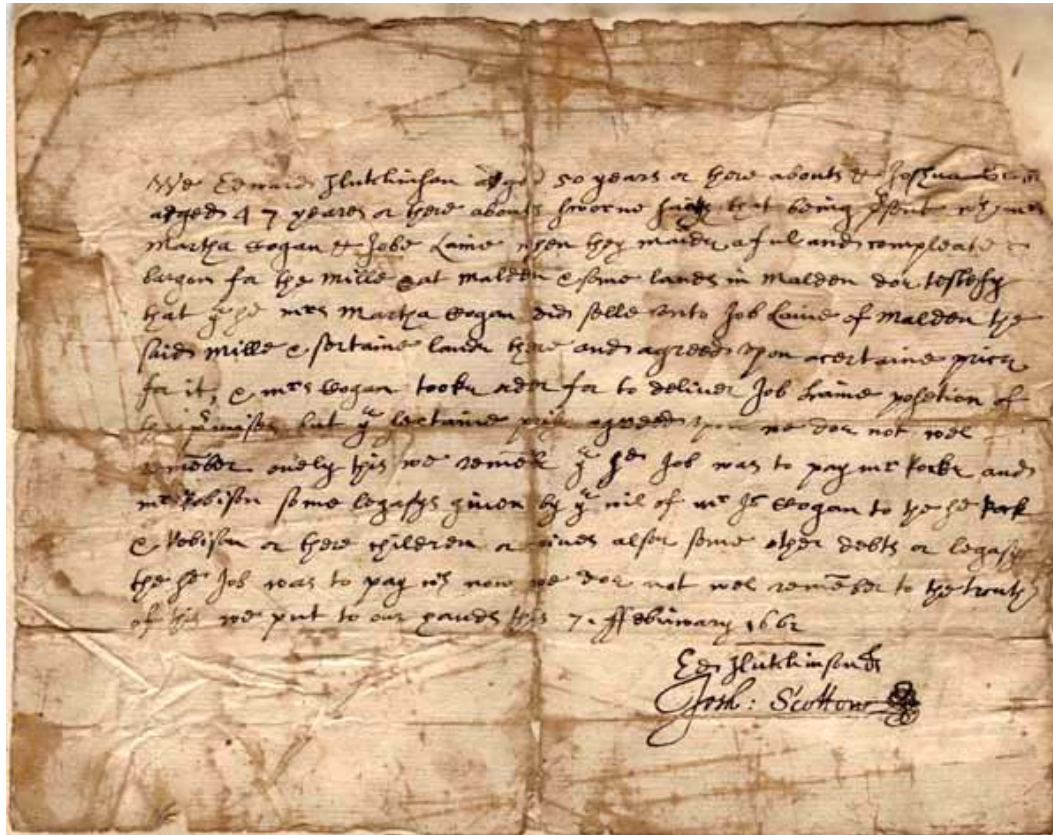 We Edward Hutchinson aged 50 years or there abouts & Joshua
adged 47 yeares or there abouts sworne that being psent
Martha Cogan & Jobe Laine when they made a ful and compleate
bargon for the Mille at Malden & some lands in Malden doe testefy
that ye sd mrs Martha Cogan did selle unto Job Laine of Malden the
said Mille & sertaine lands there and agreed upon a certaine price
for it, & mrs Cogan tooke order for to deliver Job Laine posetion of
the pmises but ye sertaine price agreed upon we doe not wel
remember onely this we remember yt sd Job was to pay mr Rocke and
mr Robison some legasys given by ye wil of mr Jo Cogan to the sd Rock
& Robison or there children or wives alsoe some other debts or legasys
the sd Job was to pay wch now we doe not wel remember to the trouth
of this we put to our hands this 7. ffebruwary 1662
Ed Hutchinson
Josh: Scottow